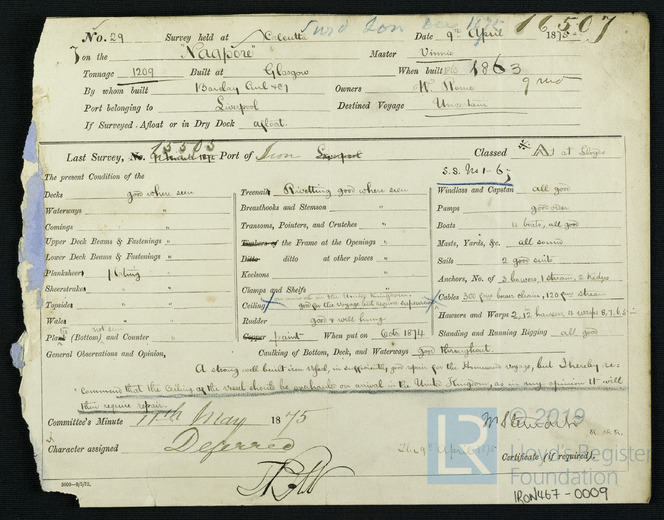 Sur'd Iron Dec 1875 16507
No. 29 Survey held at Calcutta Date 9th April 1875
on the "Nagpore" Master Vinnie
Tonnage 1209 Built at Glasgow When built 1863
By whom built Barclay Curle & Co Owners W. 9 mo
Port belonging to Liverpool Destined Voyage Uncertain
If Surveyed Afloat or in Dry Dock afloat.
15503
Last Survey, No. Port of Iron Liverpool Classed A1 at Lloyds
The present Condition of the S.S. No 1-65
Decks good where seen
Waterways "
Comings "
Upper Deck Beams & Fastenings "
Lower Deck Beams & Fastenings "
Planksheers
Sheerstrakes "
Topsides "
Wales "
not seen
Plank (Bottom) and Counter "
Treenails Rivetting good where seen
Breasthooks and Stemson "
Transoms, Pointers, and Crutches "
Timbers of the Frame at the Openings "
Ditto ditto at other places "
Keelsons "
Clamps and Shelfs "
on arrival in the United Kingdom
Ceiling good for the voyage but requires
Rudder good & well hung
Copper paint When put on Octr 1874
Windlass and Capstan all good
Pumps good order
Boats 4 boats, all good
Masts, Yards, &c. all sound
Sails 2 good suits
Anchors, No. of 3 bowers, 1 stream, 2 kedges
Cables 300 fms bower chain, 120 fms stream
Hawsers and Warps 2, 12 hawsers 4 warps 8, 7, 6, 5
Standing and Running Rigging all good
Caulking of Bottom, Deck, and Waterways good throughout.
General Observations and Opinion, A strong well built iron vessel, in sufficiently good repair for the homeward voyage, but I hereby re-
commend that the Ceiling of the vessel should be overhauled on arrival in the United Kingdom, as in my opinion it will
then require repair.
Committee's Minute 11th May 1875
Character assigned Deferred
The 9th April 1875
Certificate (if required).
© 2019
LR Lloyd's Register
Foundation
IRON467-0009